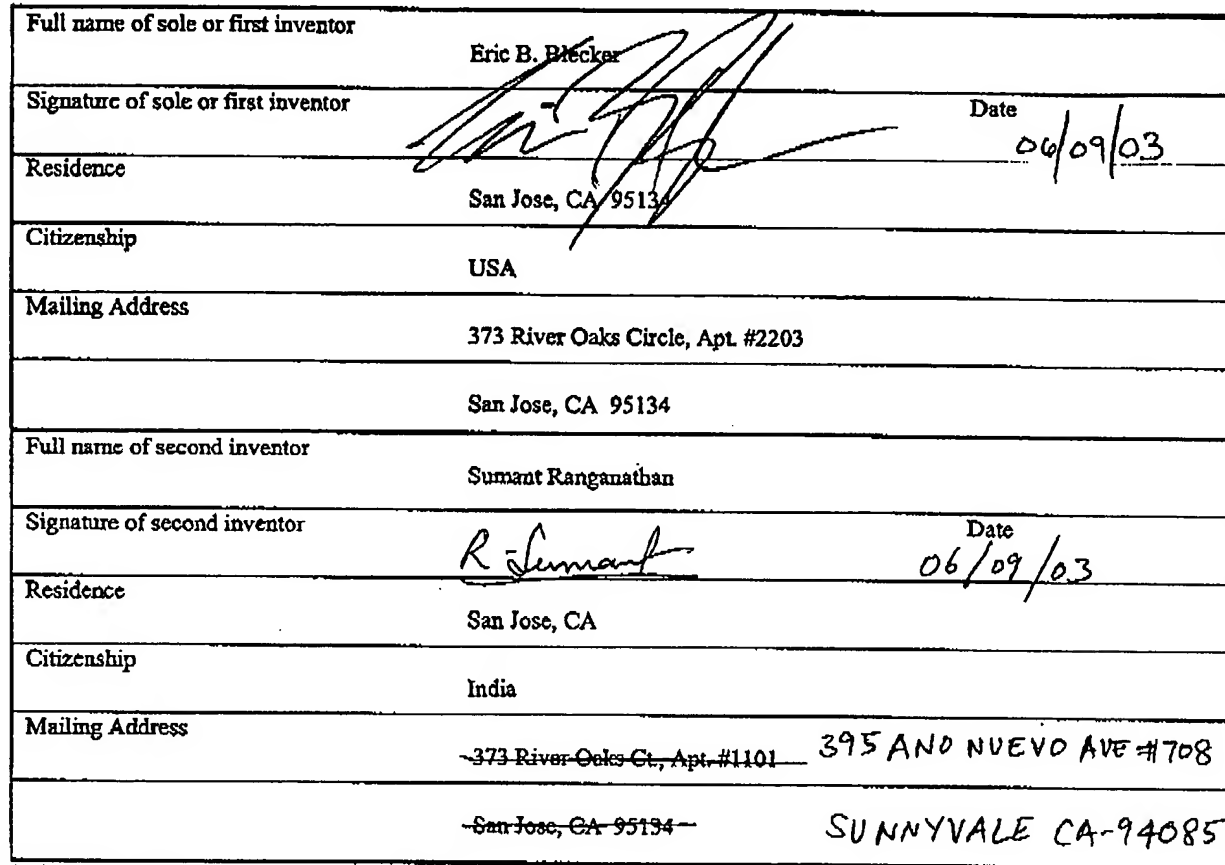 Full name of sole or first inventor
Eric B. Blecker
Signature of sole or first inventor
Date
06/09/03
Residence
San Jose, CA 95134
Citizenship
USA
Mailing Address
373 River Oaks Circle, Apt. #2203
San Jose, CA 95134
Full name of second inventor
Sumant Ranganathan
Signature of second inventor
R Sumant
Date
06/09/03
Residence
San Jose, CA
Citizenship
India
Mailing Address
373 River Oaks Ct., Apt. #1101 395 ANO NUEVO AVE #708
San Jose, CA 95134 SUNNYVALE CA-94085